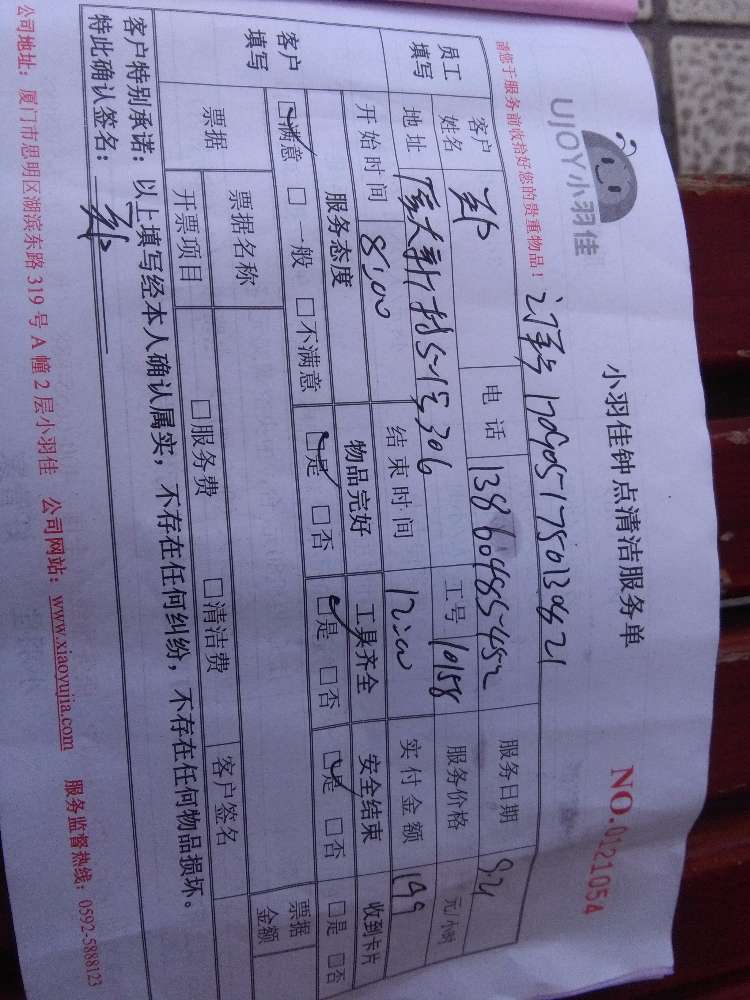 UJOY小羽佳
小羽佳钟点清洁服务单
NO.0121054
请您于服务前收拾好您的贵重物品！
员工填写 客户姓名 郑 电话 13860485452 服务日期 9.21
地址 306 工号 10158 服务价格 元/小时
开始时间 8:00 结束时间 12:00 实付金额 149
客户填写 服务态度 物品完好 工具齐全 安全结束 收到卡片
☑满意 □一般 □不满意 ☑是 □否 ☑是 □否 ☑是 □否 □是 □否
票据 票据名称 □服务费 □清洁费 客户签名 票据金额
开票项目
客户特别承诺：以上填写经本人确认属实，不存在任何纠纷，不存在任何物品损坏。
特此确认签名：郑
公司地址：厦门市思明区湖滨东路319号A幢2层小羽佳 公司网站：www.xiaoyujia.com 服务监督热线：0592-5888123